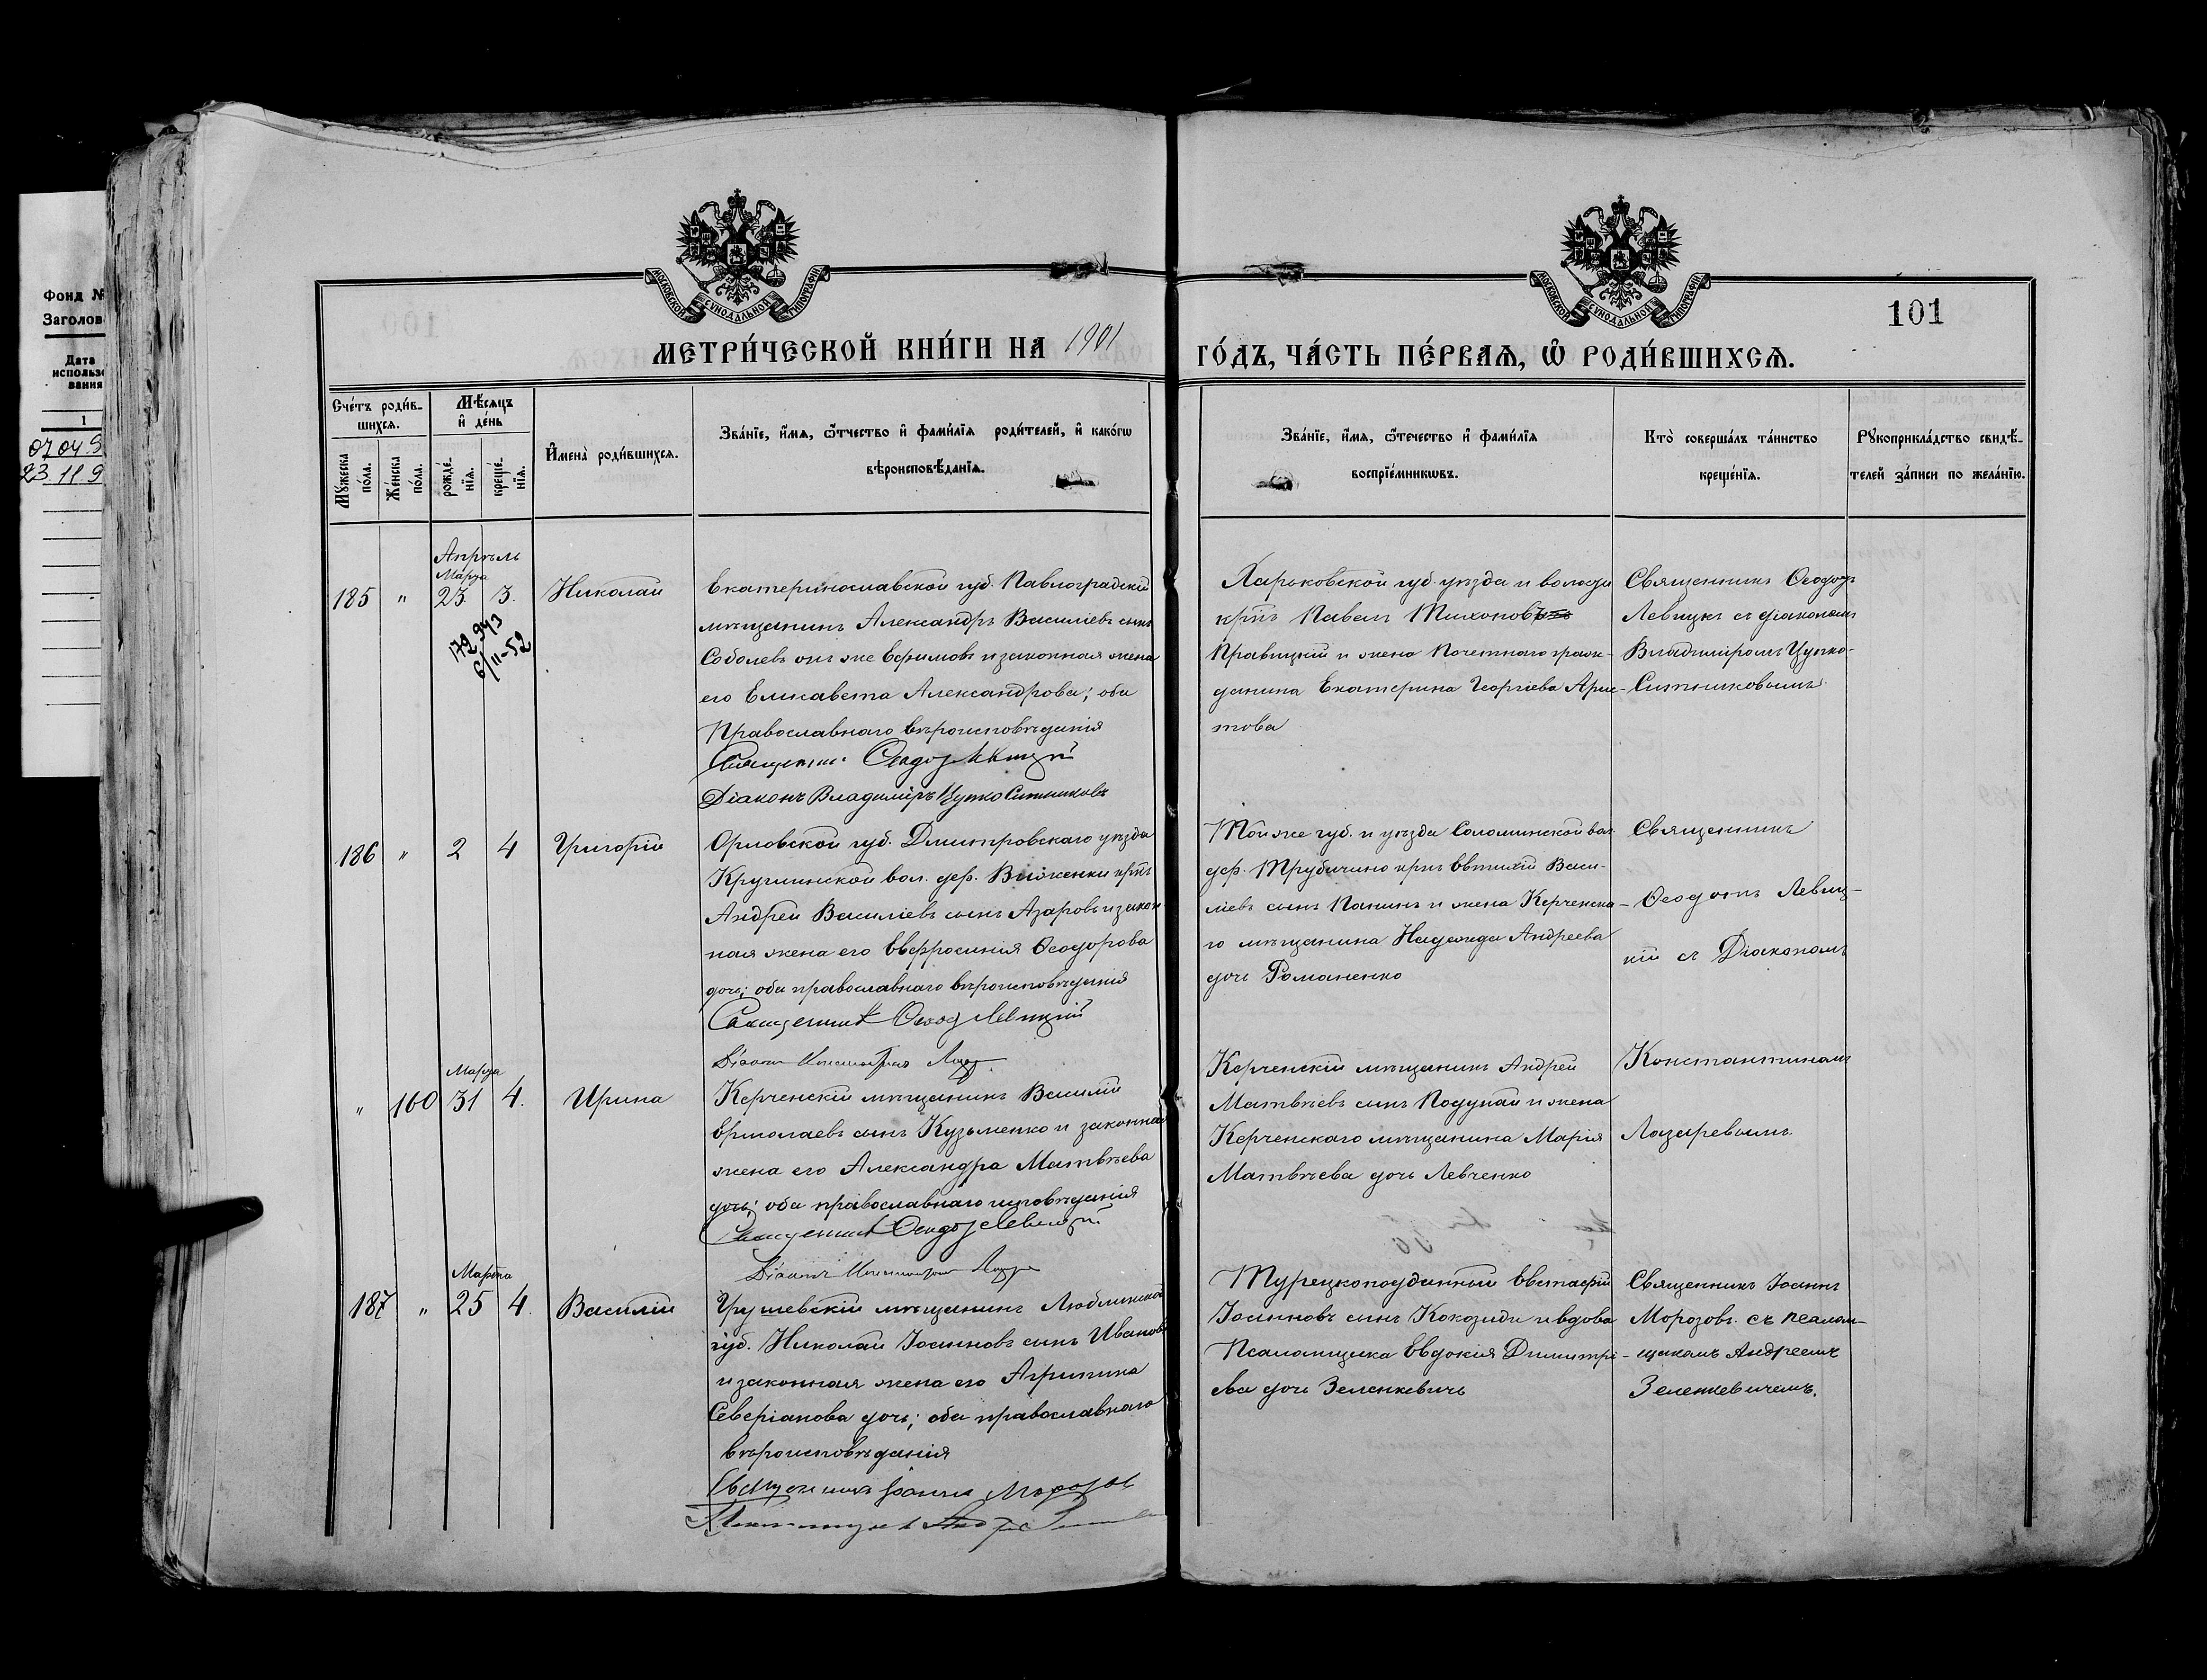 Фонд №
Заголов
Дата
использо
вания
1
07 04 9
23 11 9
МОСКОВСКОЙ СѴНОДАЛЬНОЙ ТИПОГРАФІИ
МОСКОВСКОЙ СѴНОДАЛЬНОЙ ТИПОГРАФІИ
101
МЕТРИ́ЧЕСКОЙ КНИ́ГИ НА 1901
ГО́ДЪ, ЧА́СТЬ ПЕ́РВАѦ, Ѽ РОДИ́ВШИХСѦ.
Сче́тъ роди́в-
шихсѧ.
Му́жеска по́ла.
Же́нска по́ла.
Мѣ́сѧцъ
и҆ де́нь
рожде́-
нїѧ.
креще́-
нїѧ.
И҆мена̀ роди́вшихсѧ.
Зва́нїе, и҆́мѧ, ѻ҆́тчество и҆ фами́лїѧ роди́телей, и҆ како́гѡ
вѣроисповѣ́данїѧ.
Зва́нїе, и҆́мѧ, ѻ҆́течество и҆ фами́лїѧ
воспрїе́мникѡвъ.
Кто̀ соверша́лъ та́инство
креще́нїѧ.
Рꙋкоприкла́дство свидѣ́-
телей за́писи по жела́нїю.
Апрѣль
Марта
185 " 23. 3. Николай
172943
6/11-52
Екатеринославской губ. Павлоградскій
мѣщанинъ Александръ Василіевъ сынъ
Соболевъ онъ же Ефимовъ и законная жена
его Елисавета Александрова; оба
Православнаго вѣроисповѣданія
Священникъ Ѳеодот Левицкій
Діаконъ Владиміръ Цупко Ситниковъ
Харьковской губ. уѣзда и волости
крнъ Павелъ Тихоновъ
Правицкій и жена Почетнаго граж-
данина Екатерина Георгіева Арис-
това
Священникъ Ѳеодотъ
Левицкій съ діакономъ
Владиміромъ Цупко-
Ситниковымъ.
186 " 2 4 Григорій
Орловской губ. Дмитровскаго уѣзда
Круглинской вол. дер. крнъ
Андрей Василіевъ сынъ Азаровъ и закон-
ная жена его Евфросинія Ѳеодорова
дочь; оба православнаго вѣроисповѣданія
Священник Ѳеодот Левицкій
Діаконъ Константинъ Лазарев
Той же губ. и уѣзда Соломинской вол.
дер. Трубичино крнъ Евтихій Васи-
ліевъ сынъ Панинъ и жена Керченска-
го мѣщанина Надежда Андреева
дочь Романенко
Священникъ
Ѳеодотъ Левиц-
кій съ Діакономъ
Марта
" 160 31 4. Ирина
Керченскій мѣщанинъ Василій
Ермолаевъ сынъ Кузьменко и законная
жена его Александра Матвѣева
дочь; оба православнаго исповѣданія
Священник Ѳеодот Левицкій
Діаконъ Константинъ Лазарев
Керченскій мѣщанинъ Андрей
Матвѣевъ сынъ Подупай и жена
Керченскаго мѣщанина Марія
Матвѣева дочь Левченко
Константиномъ
Лазаревымъ.
Марта
187 " 25 4. Василій
Грушевскій мѣщанинъ Люблинской
губ. Николай Іоанновъ сынъ Ивановъ
и законная жена его Агрипина
Северіанова дочь; оба православнаго
вѣроисповѣданія
Священникъ Іоаннъ Морозов
Псаломщикъ Андрей
Турецкоподданный Евстафій
Іоанновъ сынъ Кокозиди и вдова
Псаломщика Евдокія Димитрі-
ева дочь Зеленкевичъ
Священникъ Іоаннъ
Морозовъ съ псалом-
щикомъ Андреемъ
Зеленкевичемъ.